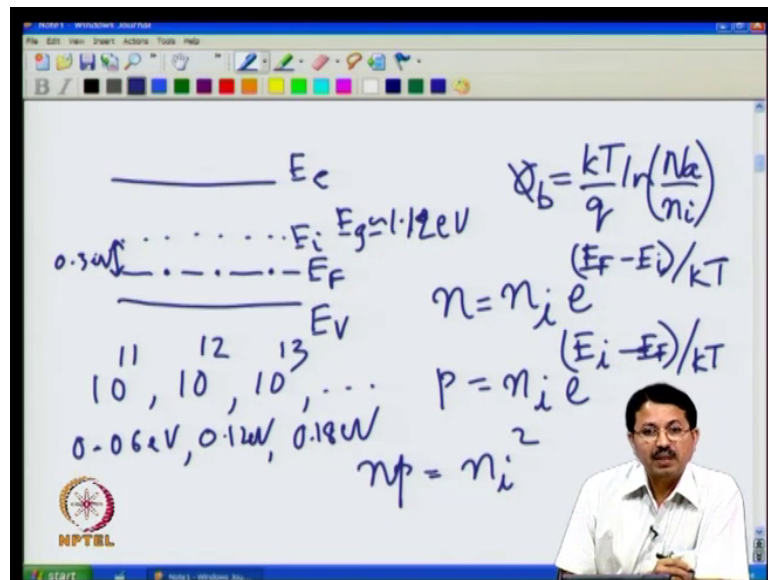 Note1 - Windows Journal
File Edit View Insert Actions Tools Help
B I
E_c
E_i E_g ≃ 1.12eV
0.3eV
E_F
E_V
10^11, 10^12, 10^13, ...
0.06eV, 0.12eV, 0.18eV
φ_b = kT/q ln(Na/ni)
n = n_i e^(E_F - E_i)/kT
p = n_i e^(E_i - E_F)/kT
np = n_i^2
NPTEL
start
Note1 - Windows Jou...